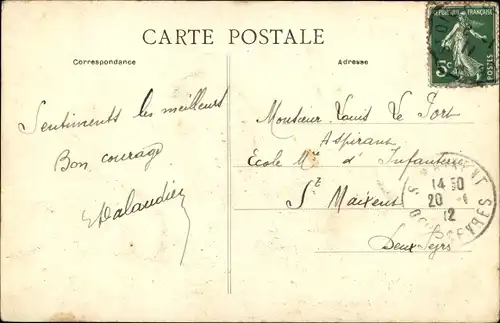 CARTE POSTALE
Correspondance
Adresse
REPUBLIQUE FRANÇAISE
5c
POSTES
Sentiments les meilleurs
Bon courage
Monsieur Louis Le Fort
Aspirant
Ecole Mre d'Infanterie
St Maixent
Deux Sèvres
14 50
20 -1
12
SEVRES